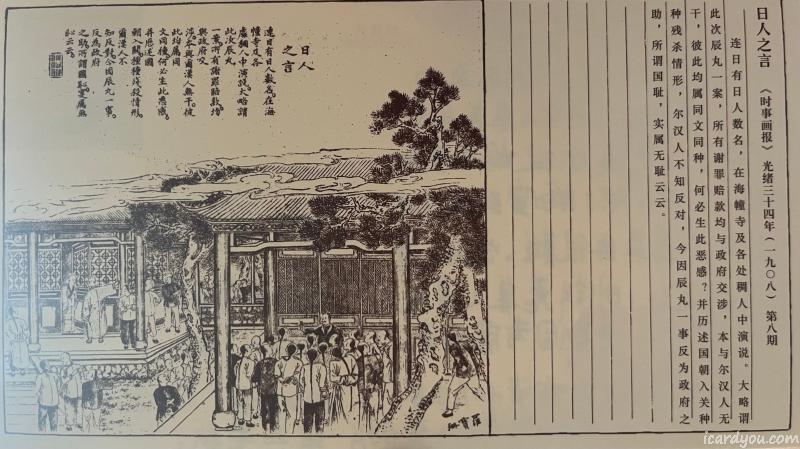 日人之言 《时事画报》光绪三十四年（一九〇八）第八期
连日有日人数名，在海幢寺及各处稠人中演说。大略谓
此次辰丸一案，所有谢罪赔款均与政府交涉，本与尔汉人无
干，彼此均属同文同种，何必生此恶感？并历述国朝入关种
种残杀情形，尔汉人不知反对，今因辰丸一事反为政府之
助，所谓国耻，实属无耻云云。
日人
之言
連日有日人數名在海
幢寺及各
處稠人中演說大略謂
此次辰丸
一案所有謝罪賠款均
與政府交
涉本與爾漢人無干彼
此均屬同
文同種何必生此惡感
并歷述國
朝入關種種殘殺情形
爾漢人不
知反對今因辰丸一事
反為政府
之助所謂國恥實屬無
恥云云
icardyou.com